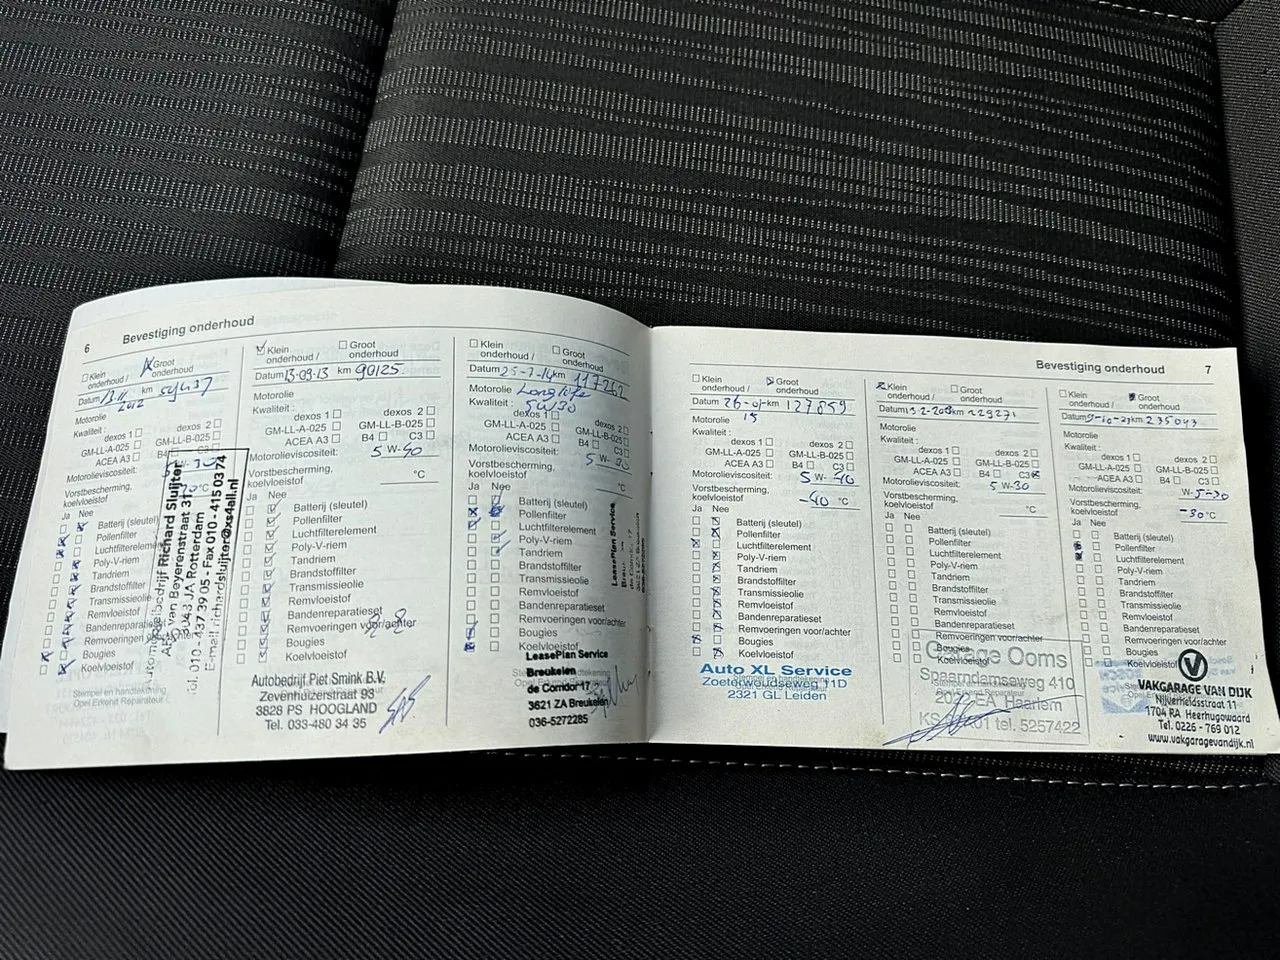 6
Bevestiging onderhoud
Klein onderhoud /
Groot onderhoud
Datum
km
Motorolie
Kwaliteit :
dexos 1
dexos 2
GM-LL-A-025
GM-LL-B-025
ACEA A3
B4
C3
Motorolieviscositeit:
Vorstbescherming,
koelvloeistof
Ja Nee
Batterij (sleutel)
Pollenfilter
Luchtfilterelement
Poly-V-riem
Tandriem
Brandstoffilter
Transmissieolie
Remvloeistof
Bandenreparatieset
Remvoeringen
Bougies
Koelvloeistof
Richard Sluijter
van Beyerenstraat 31
JA Rotterdam
Fax 010 - 415 03 74
Klein onderhoud /
Groot onderhoud
Datum 13-09-13 km 90125.
Motorolie
Kwaliteit :
dexos 1
dexos 2
GM-LL-A-025
GM-LL-B-025
ACEA A3
B4
C3
Motorolieviscositeit: 5 W-40
Vorstbescherming,
koelvloeistof
°C
Ja Nee
Batterij (sleutel)
Pollenfilter
Luchtfilterelement
Poly-V-riem
Tandriem
Brandstoffilter
Transmissieolie
Remvloeistof
Bandenreparatieset
Remvoeringen voor/achter
Bougies
Koelvloeistof
Autobedrijf Piet Smink B.V.
Zevenhuizerstraat 93
3828 PS HOOGLAND
Tel. 033-480 34 35
Klein onderhoud /
Groot onderhoud
Datum 25-7-14 km 117262
Motorolie Longlife
Kwaliteit : 5W30
dexos 1
dexos 2
GM-LL-A-025
GM-LL-B-025
ACEA A3
B4
C3
Motorolieviscositeit:
Vorstbescherming,
koelvloeistof
°C
Ja Nee
Batterij (sleutel)
Pollenfilter
Luchtfilterelement
Poly-V-riem
Tandriem
Brandstoffilter
Transmissieolie
Remvloeistof
Bandenreparatieset
Remvoeringen voor/achter
Bougies
Koelvloeistof
LeasePlan Service
Breukelen
de Corridor 17
3621 ZA Breukelen
036-5272285
Bevestiging onderhoud
7
Klein onderhoud /
Groot onderhoud
Datum 26-01-15 km 127859
Motorolie
Kwaliteit :
dexos 1
dexos 2
GM-LL-A-025
GM-LL-B-025
ACEA A3
B4
C3
Motorolieviscositeit: 5 W-40
Vorstbescherming,
koelvloeistof
-40 °C
Ja Nee
Batterij (sleutel)
Pollenfilter
Luchtfilterelement
Poly-V-riem
Tandriem
Brandstoffilter
Transmissieolie
Remvloeistof
Bandenreparatieset
Remvoeringen voor/achter
Bougies
Koelvloeistof
Auto XL Service
Zoeterwoudseweg 11D
2321 GL Leiden
Klein onderhoud /
Groot onderhoud
Datum km 229271
Motorolie
Kwaliteit :
dexos 1
dexos 2
GM-LL-A-025
GM-LL-B-025
ACEA A3
B4
C3
Motorolieviscositeit: 5 W-30
Vorstbescherming,
koelvloeistof
°C
Ja Nee
Batterij (sleutel)
Pollenfilter
Luchtfilterelement
Poly-V-riem
Tandriem
Brandstoffilter
Transmissieolie
Remvloeistof
Bandenreparatieset
Remvoeringen voor/achter
Bougies
Koelvloeistof
Garage Ooms
Spaarndamseweg 410
Haarlem
tel. 5257422
Klein onderhoud /
Groot onderhoud
Datum km 235043
Motorolie
Kwaliteit :
dexos 1
dexos 2
GM-LL-A-025
GM-LL-B-025
ACEA A3
B4
C3
Motorolieviscositeit: W-5-30
Vorstbescherming,
koelvloeistof
-30 °C
Ja Nee
Batterij (sleutel)
Pollenfilter
Luchtfilterelement
Poly-V-riem
Tandriem
Brandstoffilter
Transmissieolie
Remvloeistof
Bandenreparatieset
Remvoeringen voor/achter
Bougies
Koelvloeistof
VAKGARAGE VAN DIJK
Nijverheidsstraat 11
1704 RA Heerhugowaard
Tel. 0226 - 769 012
www.vakgaragevandijk.nl